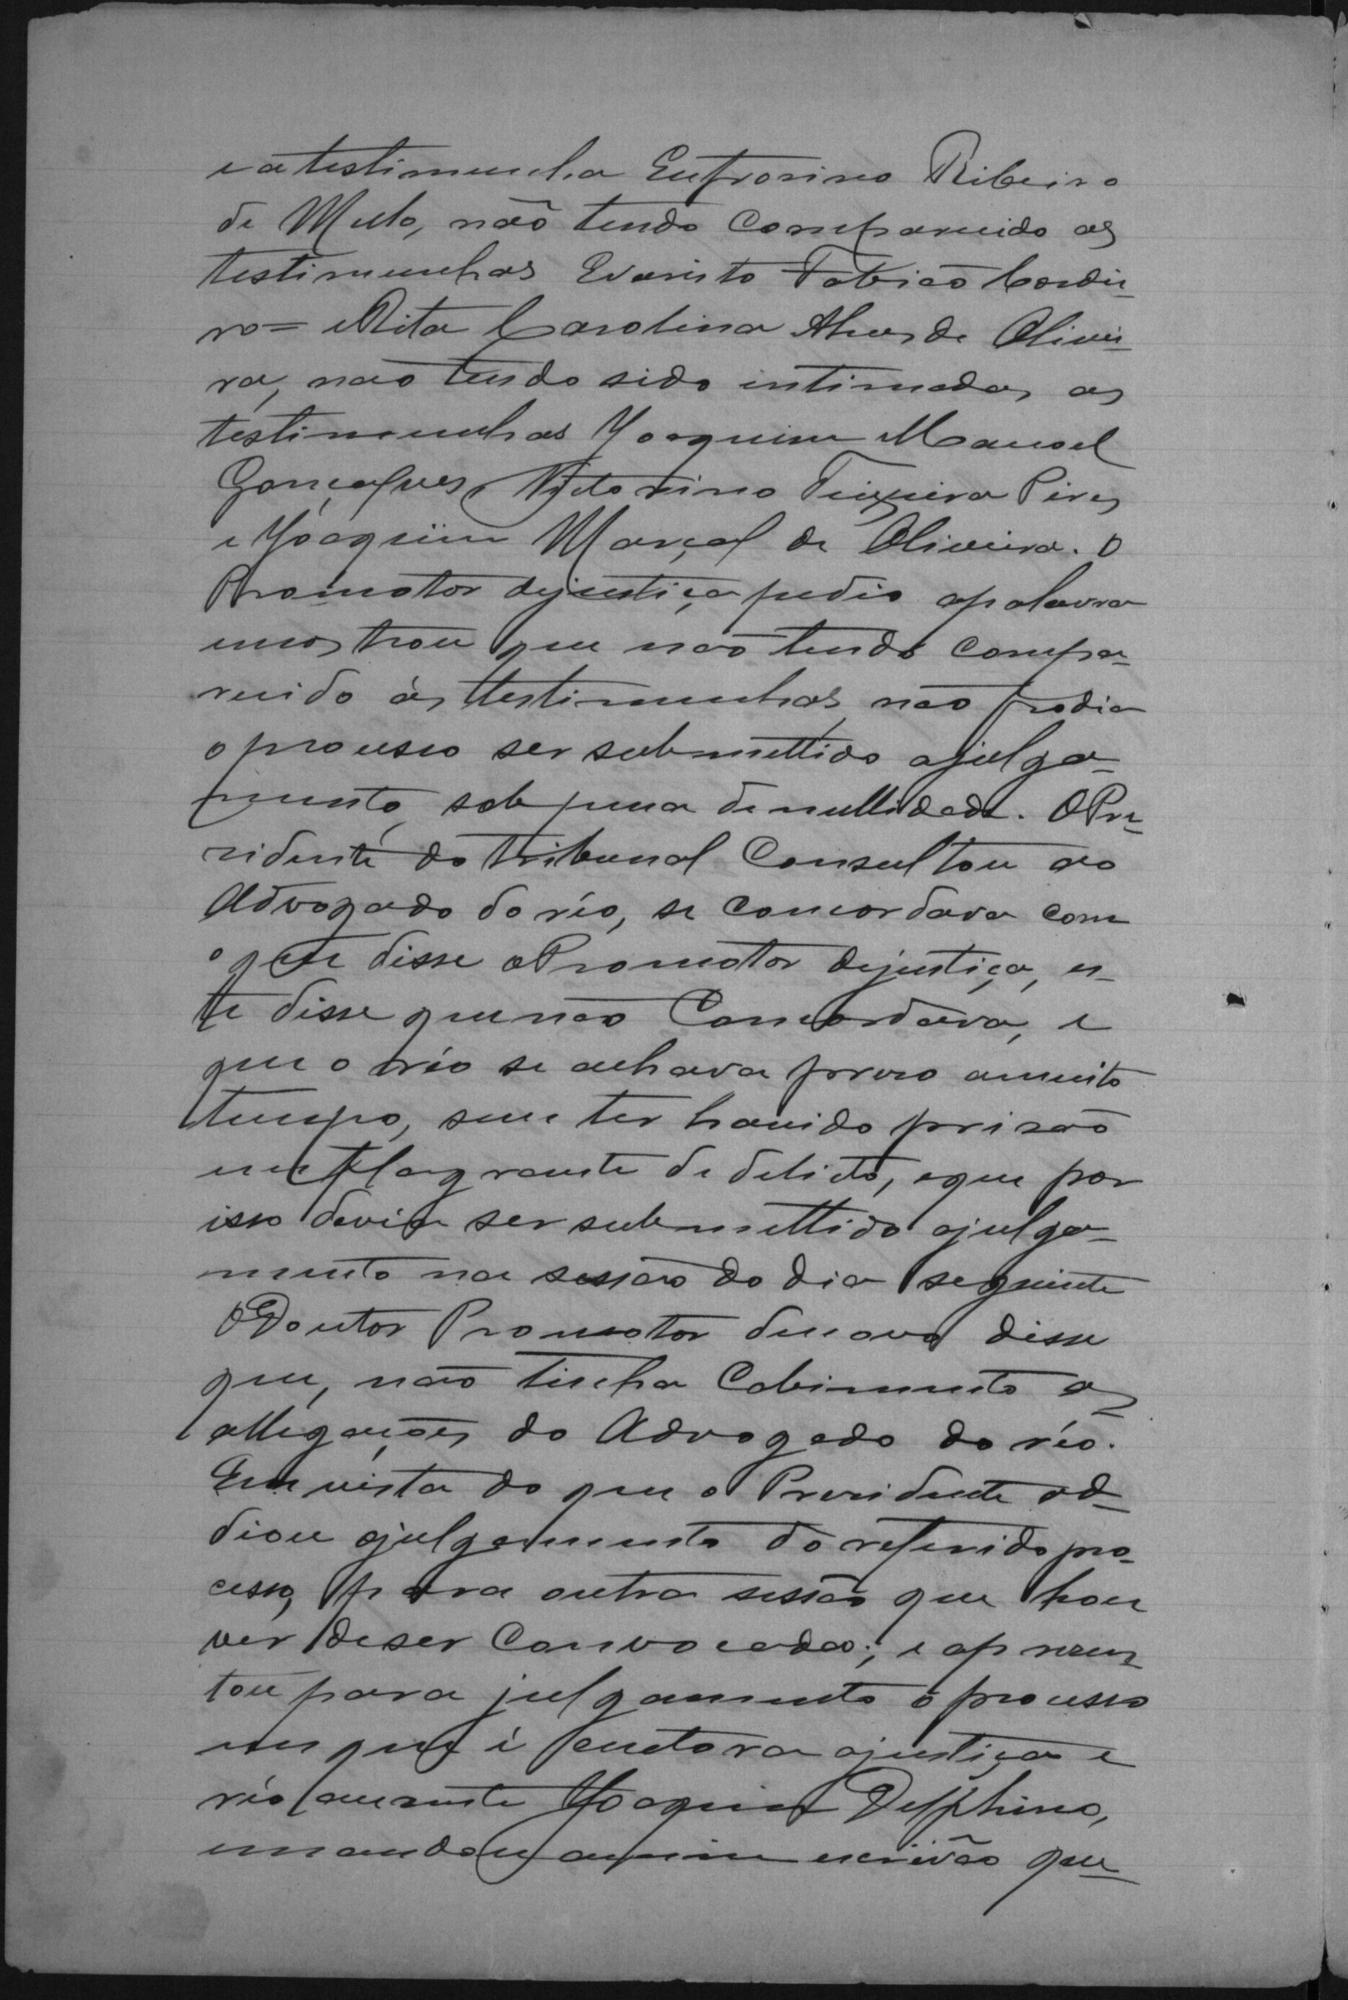 e a testimunha Eufrosino Ribeiro
de Mello, não tendo Comparecido as
testimunhas Evaristo Fabricio Cordei-
ro = e Rita Carolina Alves de Olivei-
ra, não tendo sido intimadas as
testimunhas Joaquim Manoel
Gonçalves, Victorino Teixeira Pires
e Joaquim Marçal de Oliveira. O
Promotor dejustiça pedio apalavra
mostrou que não tendo compa-
recido as testimunhas, não podia
o processo ser submettido ajulga-
mento, sob pena de nullidade. O Pre-
zidente do Tribunal Consultou ao
Advogado do réo, se concordava com
o que disse o Promotor dejustiça, es-
te disse que não Concordava, e
que o réo se achava prezo amuito
tempo, sem ter havido prizão
em flagrante de delicto, e que por
isso devia ser submettido ajulga-
mento na sessão do dia seguinte
O Doutor Promotor denovo disse
que, não tinha Cabimento as
allegações do Advogado do réo.
Em vista do que o Prezidente ad-
diou ojulgamento do referido pro-
cesso, para outra sessão que hou
ver deser Convocada; e aprezen-
tou para julgamento o processo
em que é autora ajustiça e
réo auzente Joaquim Delphino,
mandou amim escrivão que